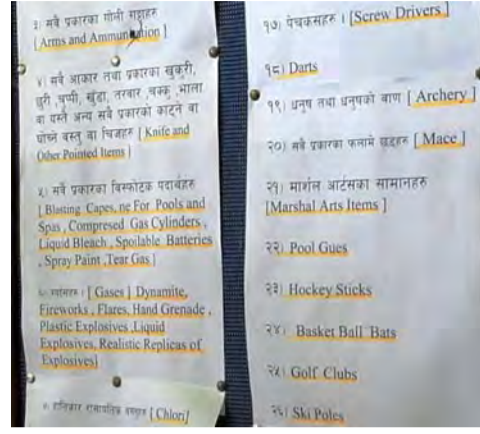 ३। सबै प्रकारका गोली गठ्ठाहरु
[Arms and Ammunition ]
४। सबै आकार तथा प्रकारका खुकुरी,
छुरी, चुप्पी, खुंडा, तरवार, चक्कु, भाला
वा यस्तै अन्य सबै प्रकारका काट्ने वा
घोच्ने वस्तु वा चिजहरु [ Knife and
Other Pointed Items ]
५। सबै प्रकारका विस्फोटक पदार्थहरु
[ Blasting Capes, ne For Pools and
Spas , Compresed Gas Cylinders ,
Liquid Bleach , Spoilable Batteries
, Spray Paint ,Tear Gas ]
६। ग्याँसहरु । [ Gases ] Dynamite,
Fireworks , Flares, Hand Grenade ,
Plastic Explosives ,Liquid
Explosives, Realistic Replicas of
Explosives]
७। हानिकार रासायनिक वस्तुहरु [ Chlori]
१७) पेचकसहरु । [Screw Drivers ]
१८) Darts
१९) धनुष तथा धनुषको बाण [ Archery ]
२०) सबै प्रकारका फलामे [ Mace ]
२१) मार्शल आर्टसका सामानहरु
[Marshal Arts Items ]
२२) Pool Gues
२३) Hockey Sticks
२४) Basket Ball Bats
२५) Golf Clubs
२६) Ski Poles